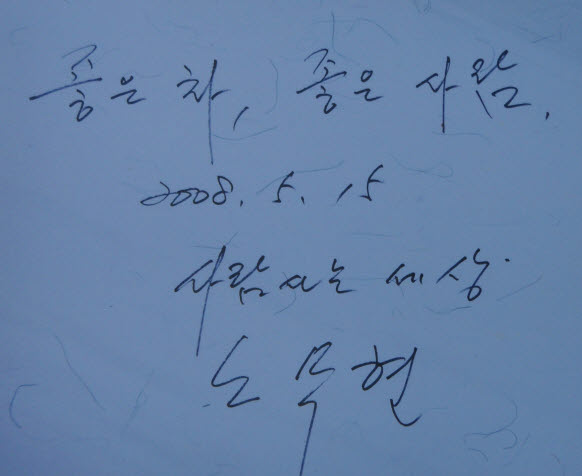 좋은 차, 좋은 사람.
2008. 5. 15
사람사는 세상
노무현